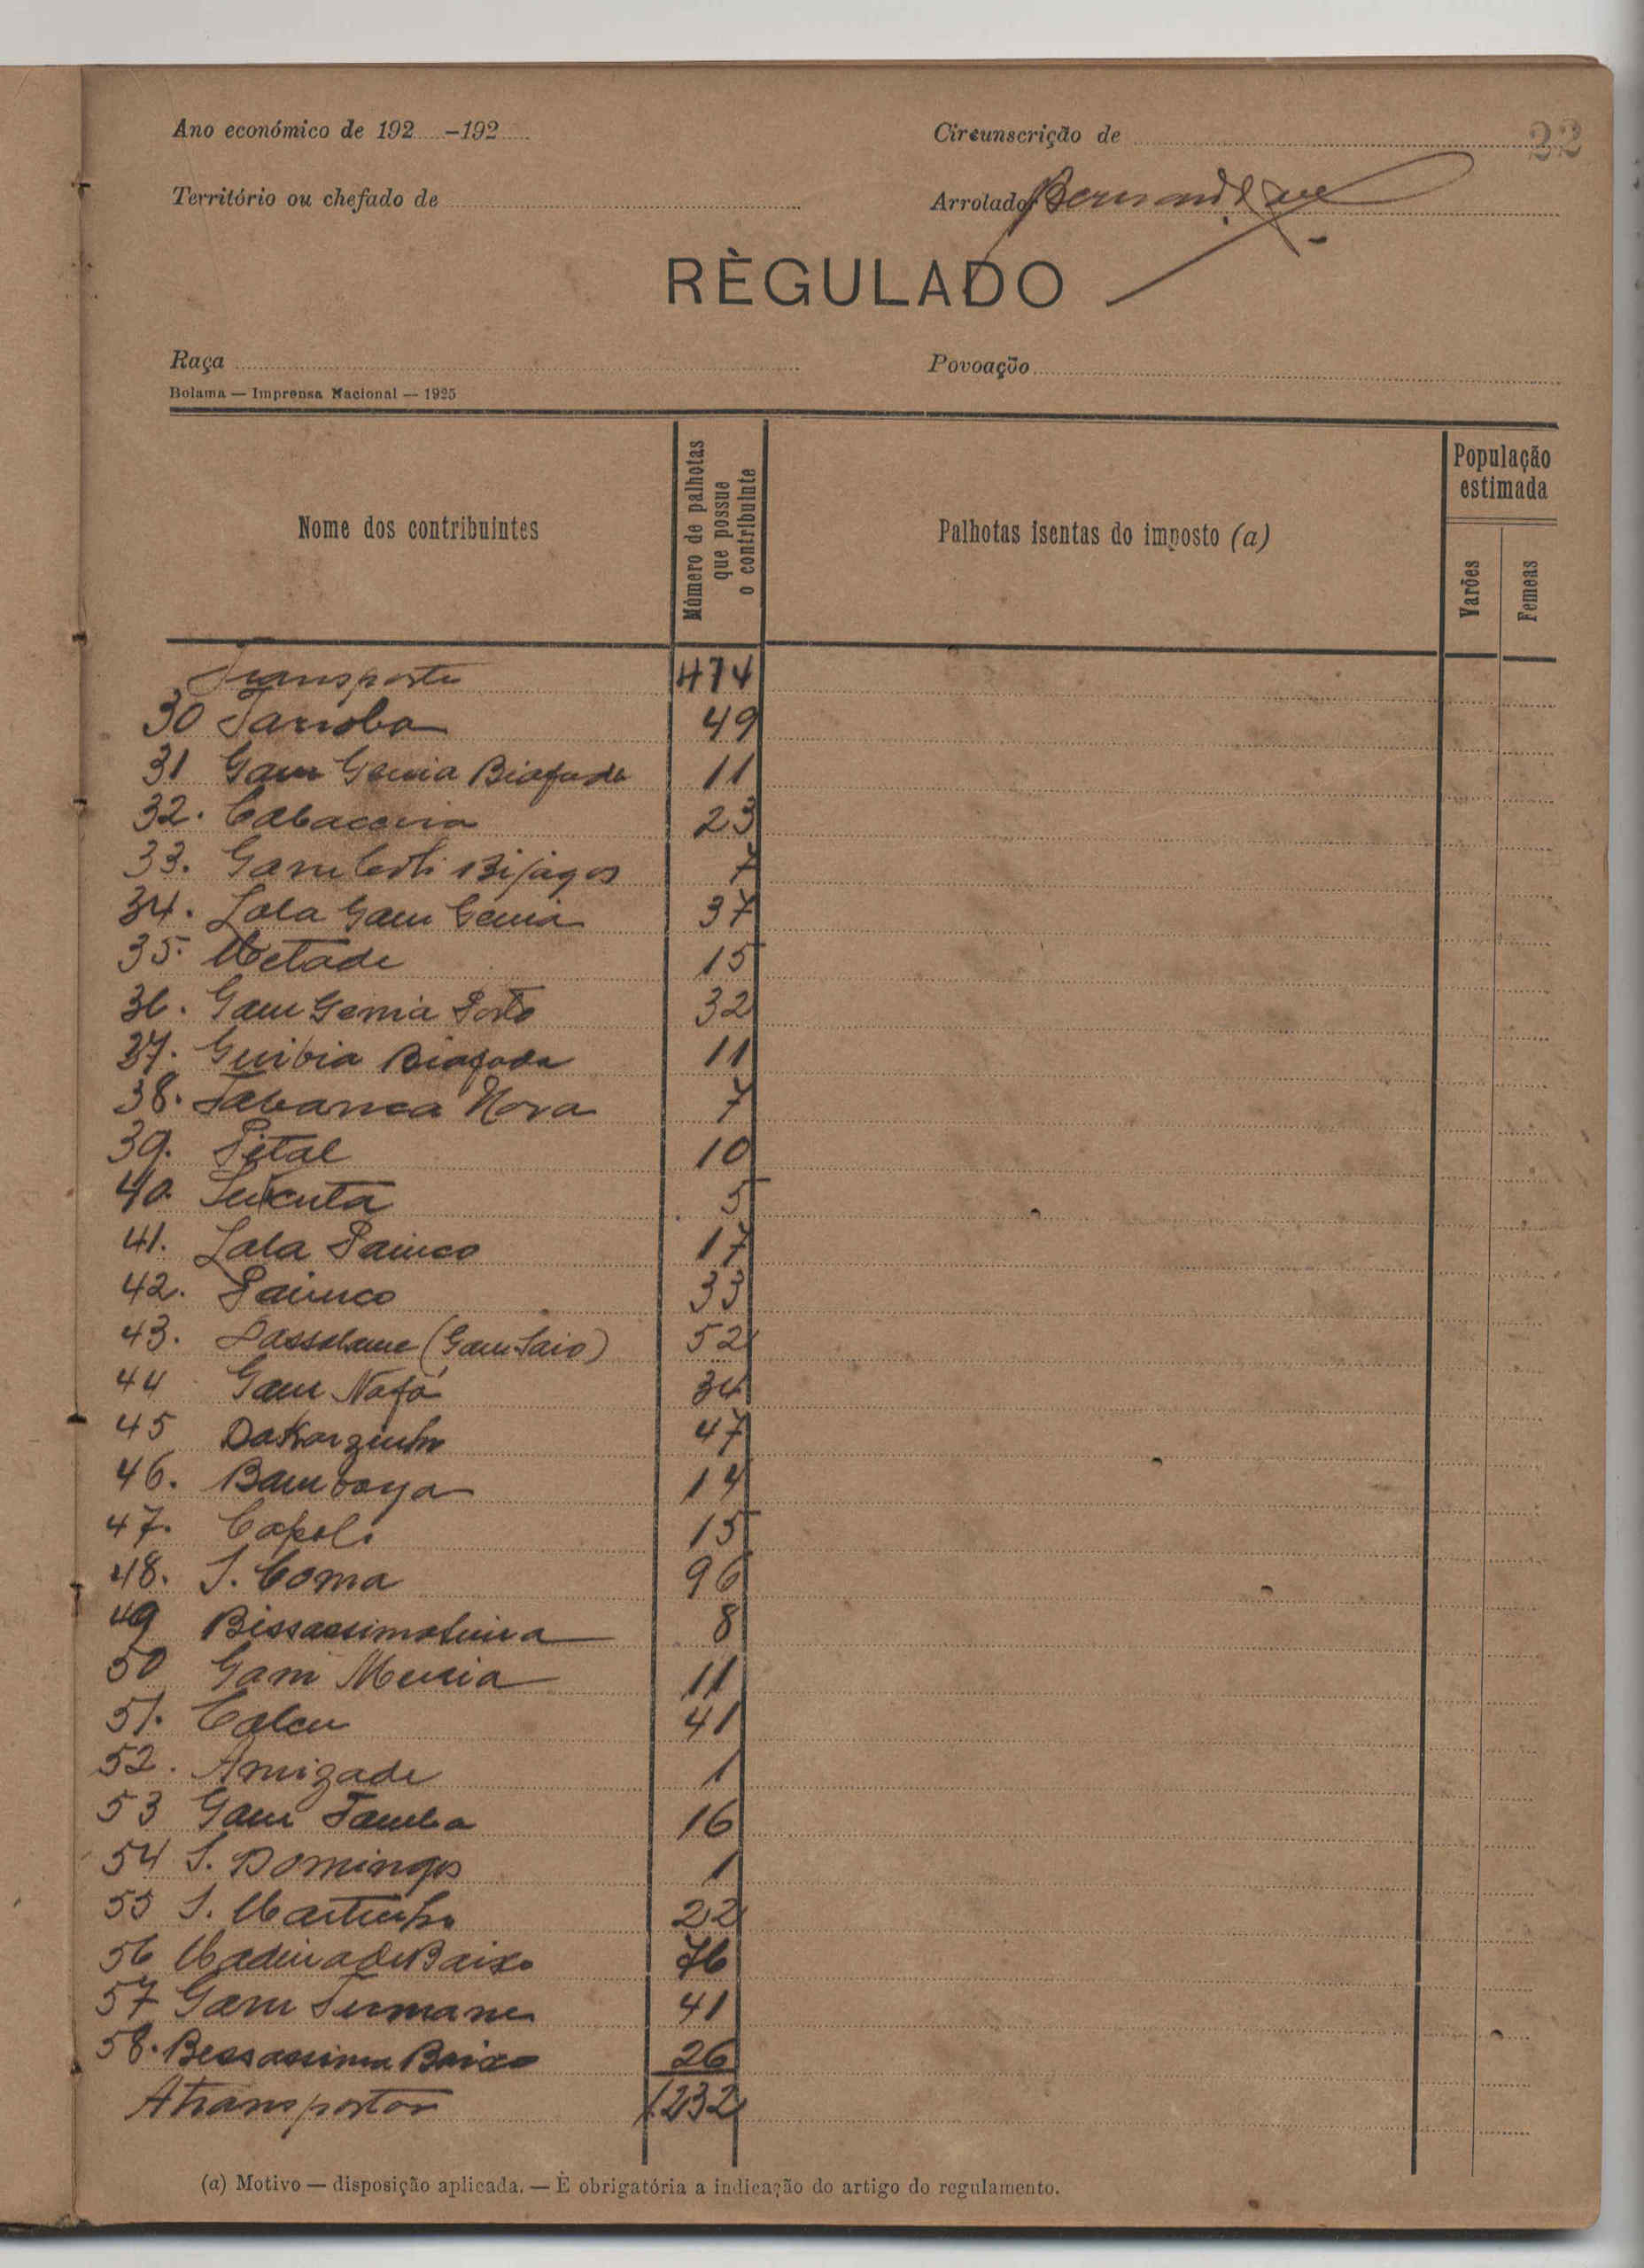 22
Ano económico de 192.....-192.....
Circunscrição de
Território ou chefado de
Arrolador
RÈGULADO
Raça
Povoação
Bolama — Imprensa Nacional — 1925
Nome dos contribuintes
Número de palhotas que possue o contribuinte
Palhotas isentas do imposto (a)
População estimada
Varões
Femeas
Transporte 474
30 Tarroba 49
31 Gam Genia Biafada 11
32. Cabaceira 23
33. Gam Bijagos 7
34. Lala Gam Genia 37
35. Metade 15
36. Gam Genia Porto 32
37. Guibia Biafada 11
38. Tabanca Nova 7
39. Pital 10
40. 5
41. Lala Painco 17
42. Painco 33
43. (Gam Saio) 52
44 Gam Nafá 34
45 Dakarzinho 47
46. Bamboya 14
47. Capoli 15
48. S. Coma 96
49 8
50 Gam Muria 11
51. Calcu 41
52. Amizade 1
53 Gam Tamba 16
54 S. Domingos 1
55 S. Martinho 22
56 Madina de Baixo 76
57 Gam Turmane 41
58. Bessassima Baixo 26
A transportar 1.232
(a) Motivo — disposição aplicada. — È obrigatória a indicação do artigo do regulamento.